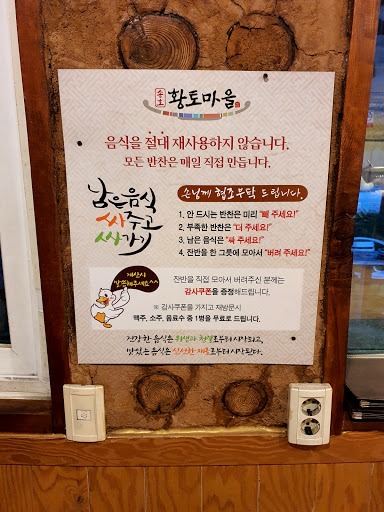 황토마을
음식을 절대 재사용하지 않습니다.
모든 반찬은 매일 직접 만듭니다.
남은음식
싸주고
쌓가기
손님께 협조부탁 드립니다.
1. 안 드시는 반찬은 미리 "빼 주세요!"
2. 부족한 반찬은 "더 주세요!"
3. 남은 음식은 "싸 주세요!"
4. 잔반을 한 그릇에 모아서 "버려 주세요!"
계산시
말씀해주세요^^
잔반을 직접 모아서 버려주신 분께는
감사쿠폰을 증정해드립니다.
※ 감사쿠폰을 가지고 재방문시
맥주, 소주, 음료수 중 1병을 무료로 드립니다.
건강한 음식은 위생과 청결로부터 시작되고,
맛있는 음식은 신선한 재료로부터 시작된다.